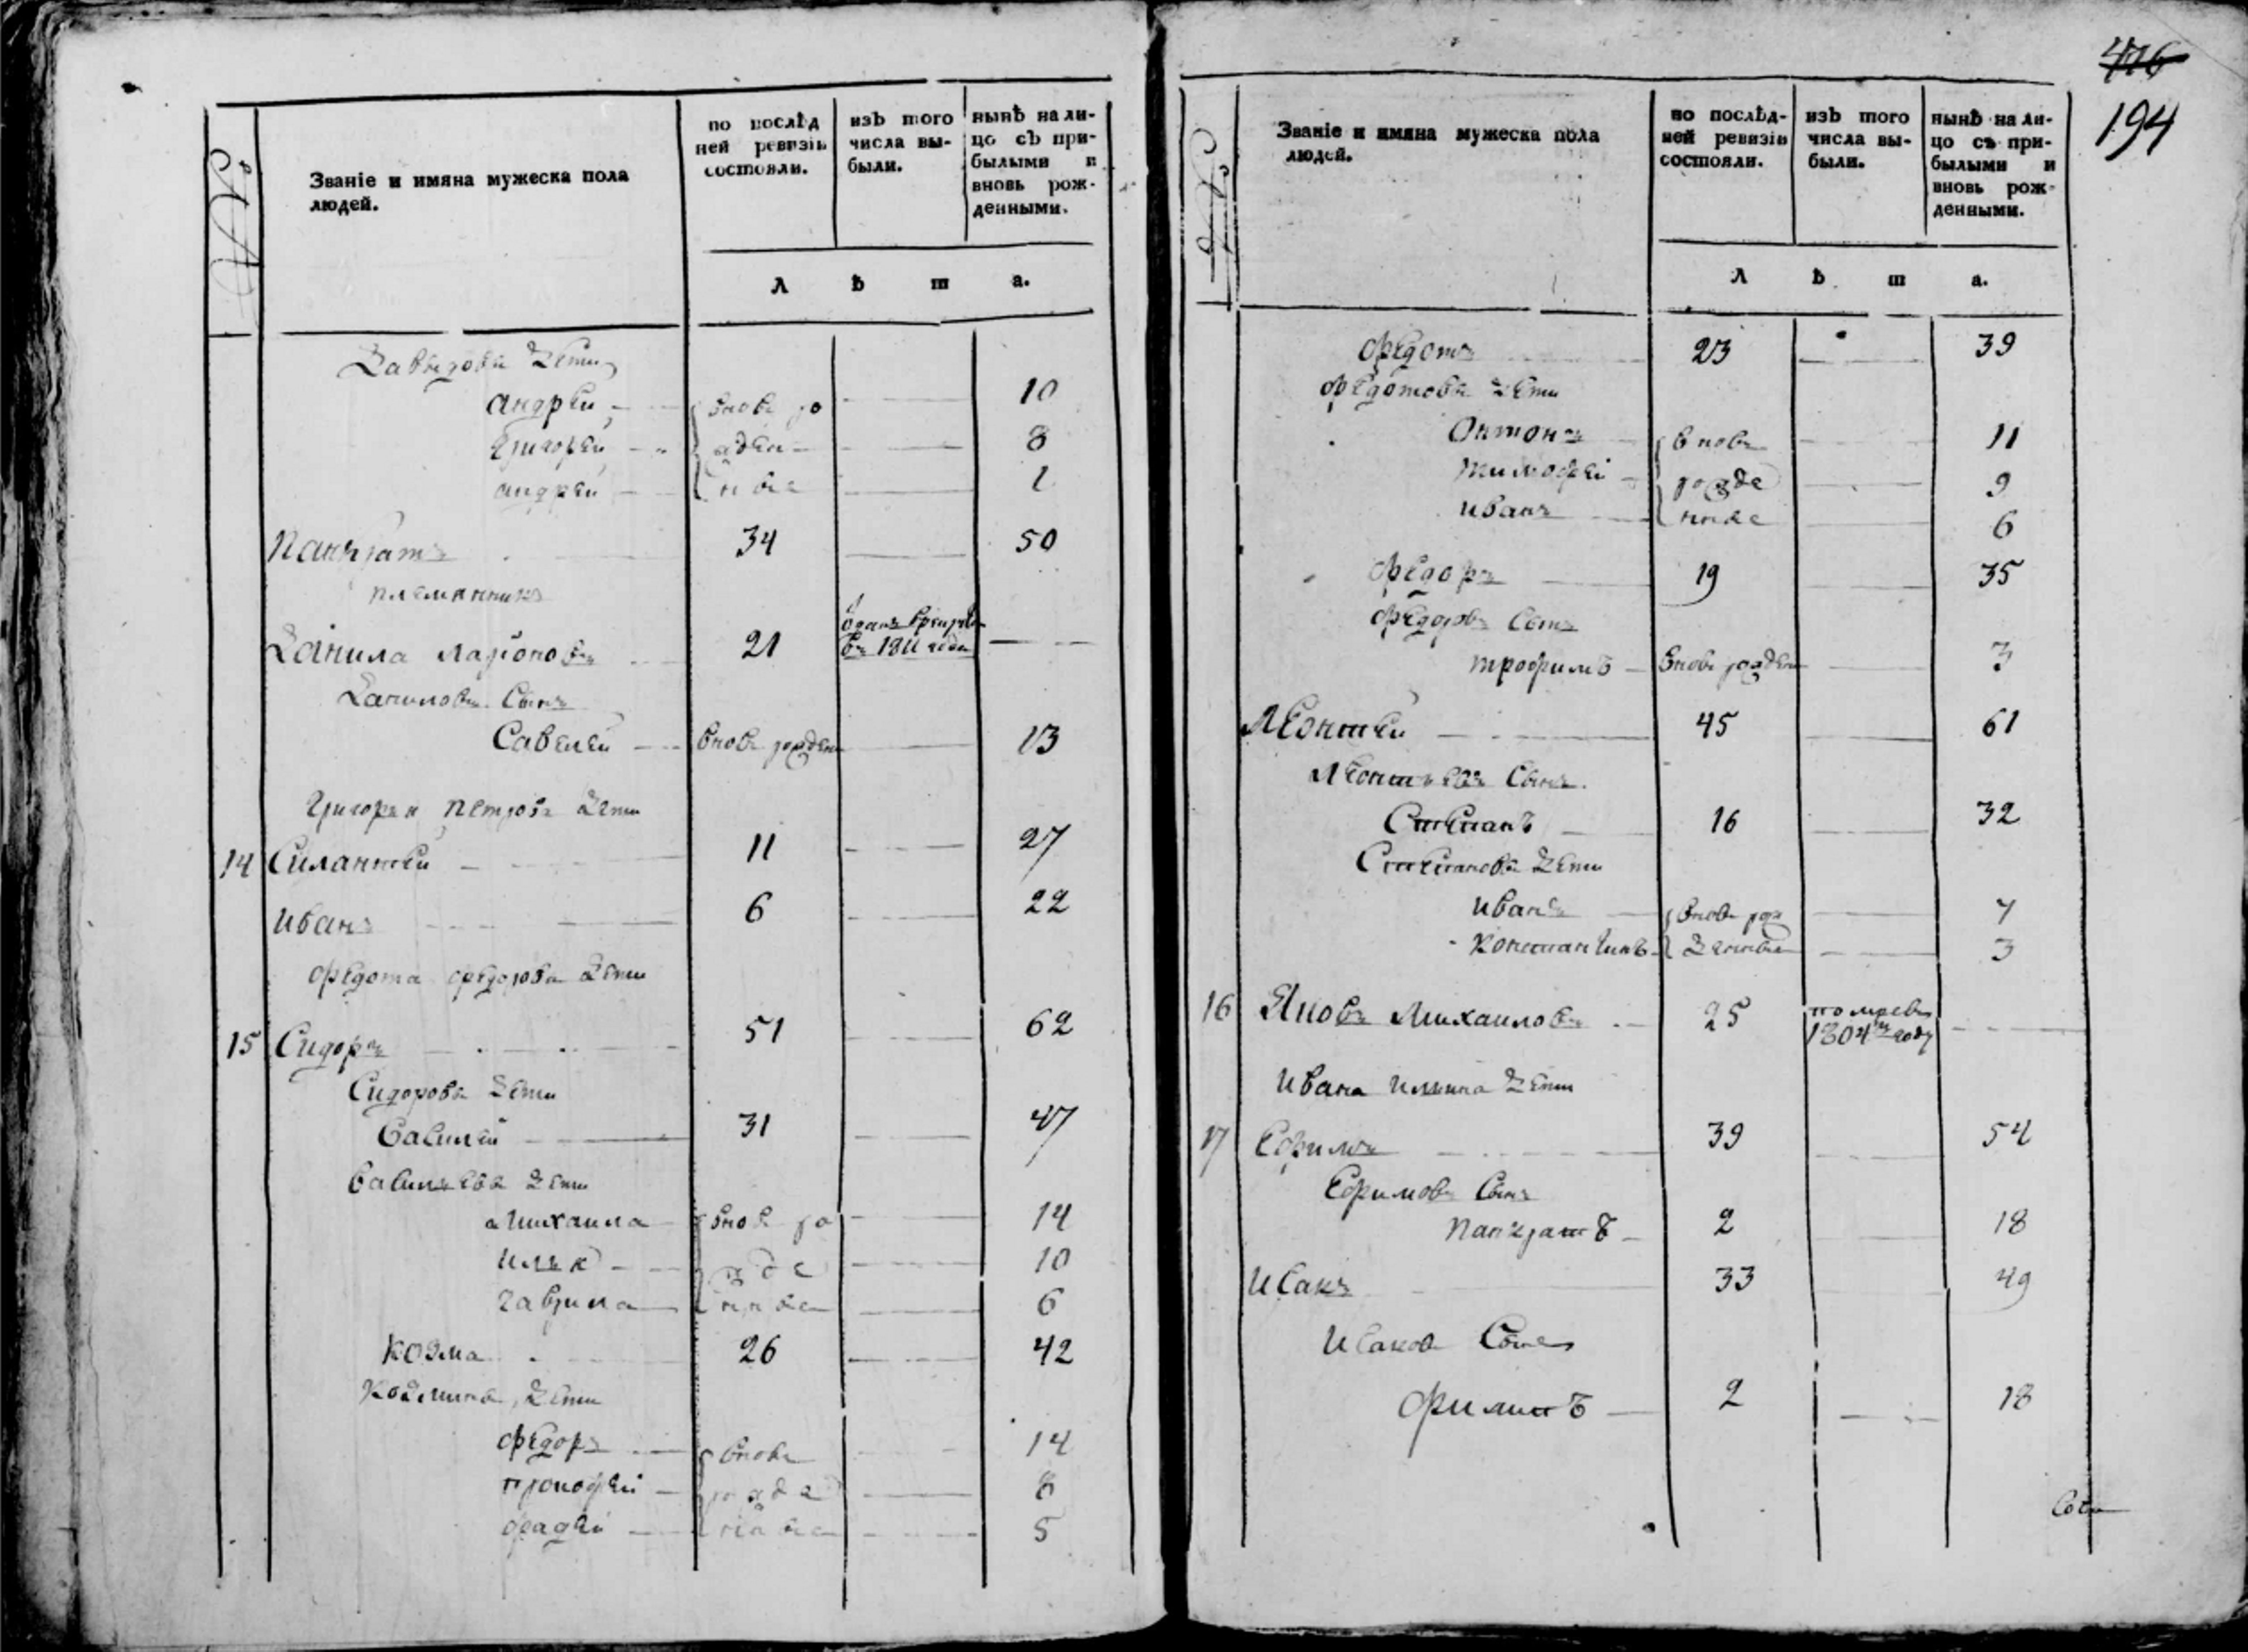 №
Званіе и имяна мужеска пола людей.
по послѣдней ревизіи состояли.
изъ того числа выбыли.
нынѣ на лицо съ прибылыми и вновь рожденными.
Л ѣ т а.
Давыдовы дети
андрей вновь ро 10
Григорей жден 8
андрей ные 1
панкратъ 34 50
племянникъ
Данила ларіоновъ 21 отданъ в рекруты въ 1811 годе
Даниловъ Сынъ
Савелей вновь рожденъ 13
Григорья петрова дети
14 Силантей 11 27
иванъ 6 22
федота федорова дети
15 Сидоръ 51 62
Сидоровы дети
василей 31 47
васильевы дети
михаила вновь ро 14
илья жде 10
гаврила нные 6
козма 26 42
козмины дети
федоръ вновь 14
прокофей рожде 8
фадей нные 5
476
194
№
Званіе и имяна мужеска пола людей.
по послѣдней ревизіи состояли.
изъ того числа выбыли.
нынѣ на лицо съ прибылыми и вновь рожденными.
Л ѣ т а.
федотъ 23 39
федотовы дети
Онтонъ вновь 11
тимофей рожде 9
иванъ нные 6
федоръ 19 35
федоровъ Сынъ
трофимъ вновь рожденъ 3
Леонтей 45 61
Леонтьевъ Сынъ
Степанъ 16 32
Степановы дети
иванъ вновь рож 7
константинъ денные 3
16 Яковъ Михаиловъ 25 помре въ 1804м году
ивана ильина дети
17 Ефимъ 39 54
Ефимовъ Сынъ
панкратъ 2 18
исакъ 33 49
исаковъ Сынъ
филипъ 2 18